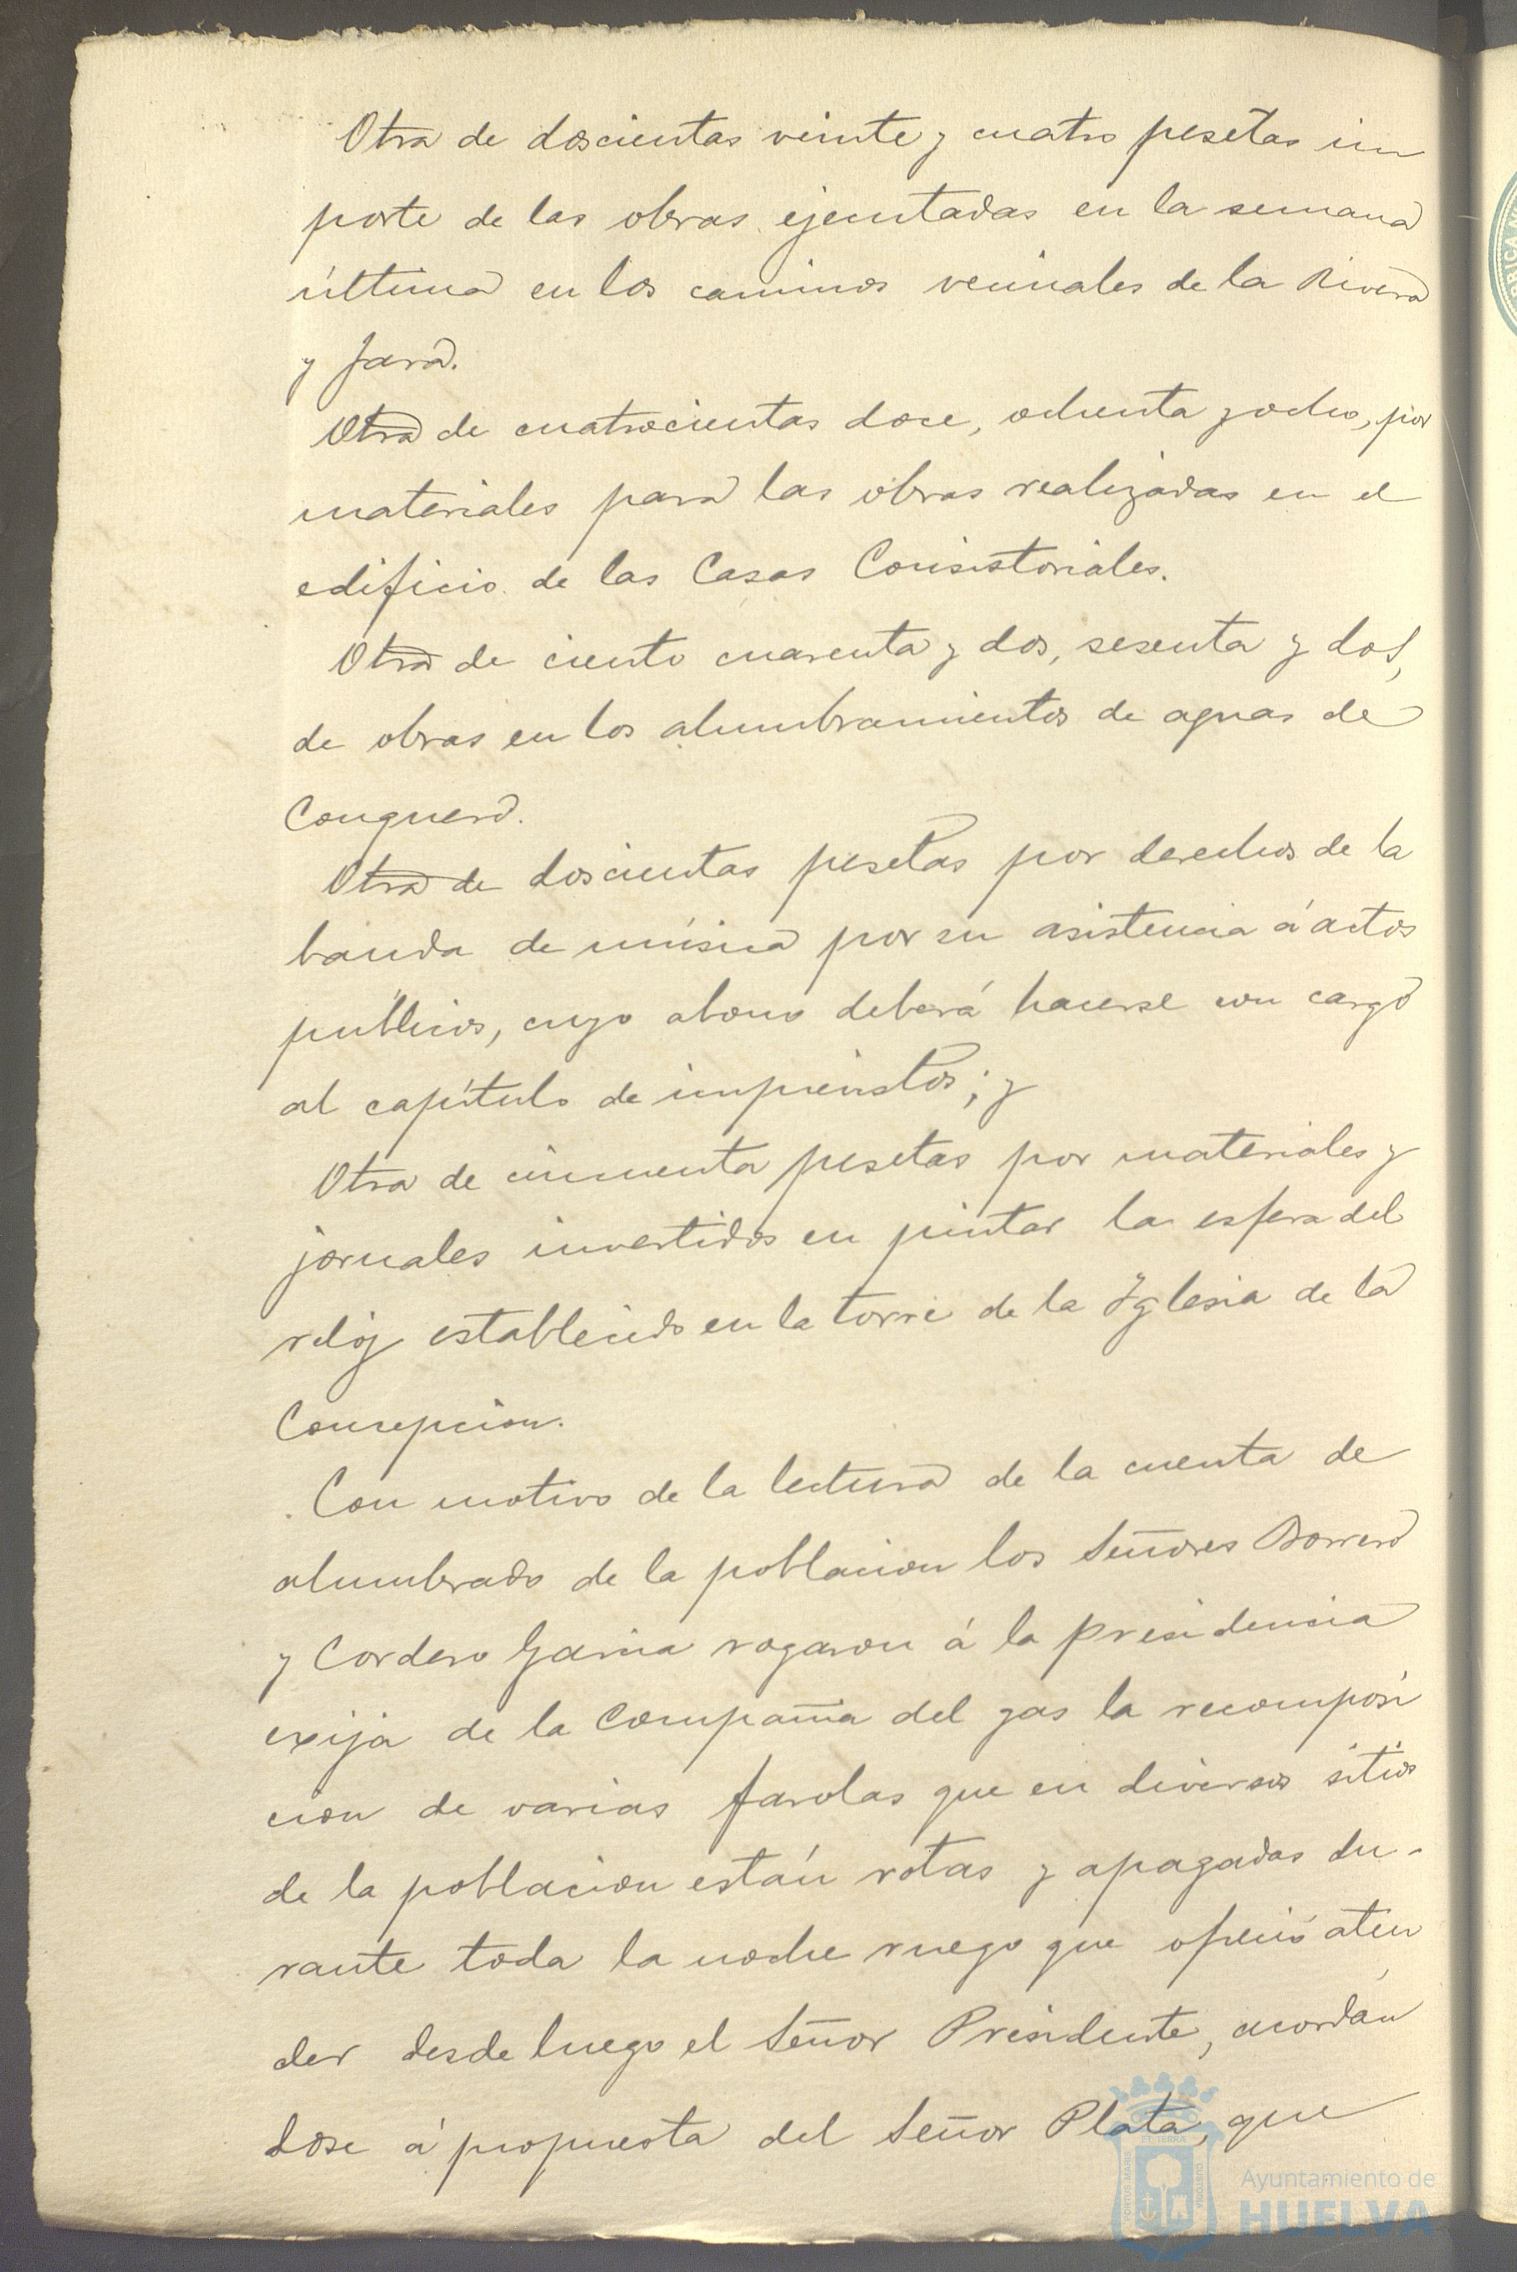 Otra de doscientas veinte y cuatro pesetas im
porte de las obras ejecutadas en la semana
última en los caminos vecinales de la Rivera
y Jara.
Otra de cuatrocientas doce, ochenta y ocho, por
materiales para las obras realizadas en el
edificio de las Casas Consistoriales.
Otra de ciento cuarenta y dos, sesenta y dos,
de obras en los alumbramientos de aguas de
Conquero.
Otra de doscientas pesetas por derechos de la
banda de música por su asistencia á actos
públicos, cuyo abono deberá hacerse con cargo
al capítulo de imprevistos; y
Otra de cincuenta pesetas por materiales y
jornales invertidos en pintar la esfera del
reloj establecido en la torre de la Iglesia de la
Concepcion.
Con motivo de la lectura de la cuenta de
alumbrado de la poblacion los Señores Borrero
y Cordero Garcia rogaron á la presidencia
exija de la Compañia del gas la recomposi
cion de varias farolas que en diversos sitios
de la poblacion están rotas y apagadas du-
rante toda la noche ruego que ofreció aten
der desde luego el Señor Presidente, acordán
dose á propuesta del Señor Plata, que
PORTUS MARIS
ET TERRÆ
CUSTODIA
Ayuntamiento de
HUELVA